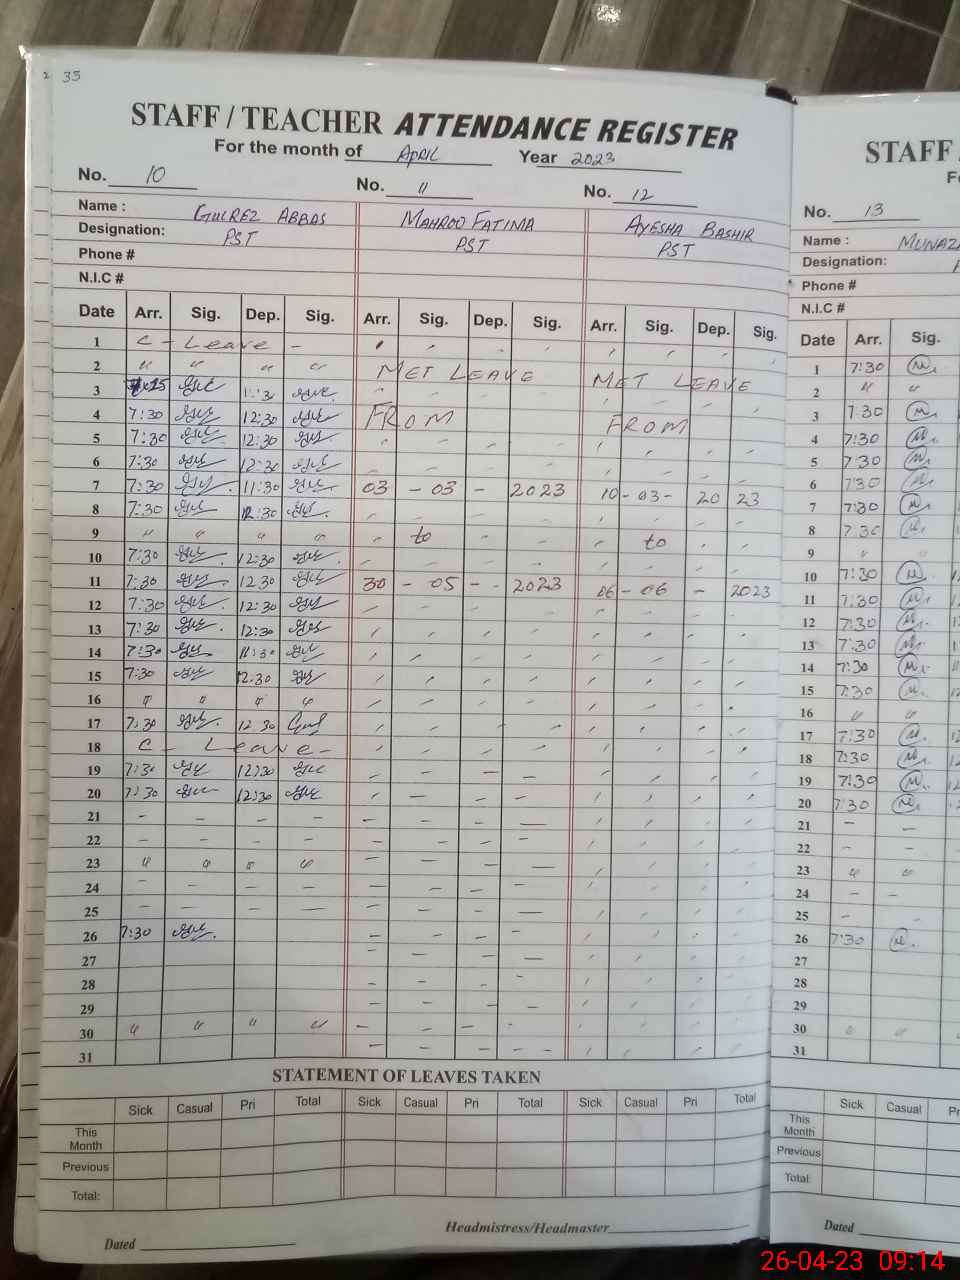 2 33
STAFF / TEACHER ATTENDANCE REGISTER
For the month of APRIL Year 2023
No. 10 No. 11 No. 12
Name : GULREZ ABBAS MAHROO FATIMA AYESHA BASHIR
Designation: PST PST PST
Phone #
N.I.C #
Date Arr. Sig. Dep. Sig. Arr. Sig. Dep. Sig. Arr. Sig. Dep. Sig.
1 C - Leave -
2 " " " " MET LEAVE MET LEAVE
3 11:30
4 7:30 12:30 FROM FROM
5 7:30 12:30
6 7:30 12:30
7 7:30 11:30 03 - 03 - 2023 10 - 03 - 2023
8 7:30 12:30
9 " " " " to to
10 7:30 12:30
11 7:30 12 30 30 - 05 - - 2023 06 - 06 - 2023
12 7:30 12:30
13 7:30 12:30
14 7:30 11:30
15 7:30 12.30
16 " " " "
17 7:30 12 30
18 C - Leave -
19 7:30 12:30
20 7:30 12:30
21 - - - -
22 - - - -
23 " " " "
24 - - - -
25 - - - -
26 7:30
27
28
29
30 " " " "
31
STATEMENT OF LEAVES TAKEN
Sick Casual Pri Total Sick Casual Pri Total Sick Casual Pri Total
This Month
Previous
Total:
Headmistress/Headmaster
Dated
STAFF /
No. 13
Name : MUNAZ
Designation:
Phone #
N.I.C #
Date Arr. Sig.
1 7:30
2 " "
3 7:30
4 7:30
5 7:30
6 7:30
7 7:30
8 7:30
9 " "
10 7:30
11 7:30
12 7:30
13 7:30
14 7:30
15 7:30
16 " "
17 7:30
18 7:30
19 7:30
20 7:30
21 - -
22 - -
23 " "
24 - -
25 - -
26 7:30
27
28
29
30 " "
31
Sick Casual
This Month
Previous
Total:
Dated
26-04-23 09:14